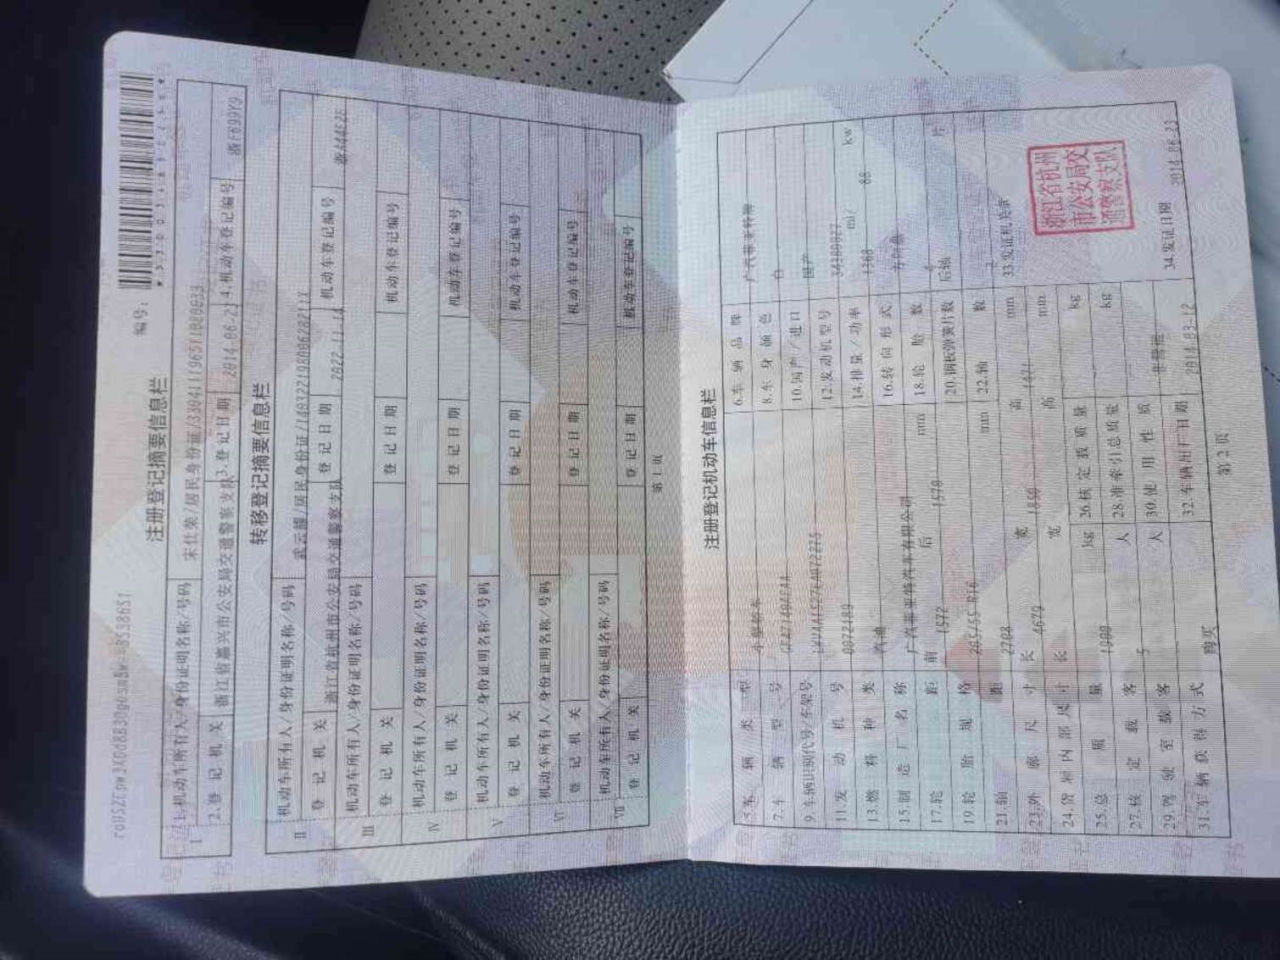 编号:
注册登记摘要信息栏
I 1.机动车所有人/身份证明名称/号码 宋仕荣/居民身份证/
2.登记机关 浙江省嘉兴市公安局交通警察支队 3.登记日期 2014-06-21 4.机动车登记编号 浙F699Y9
转移登记摘要信息栏
II 机动车所有人/身份证明名称/号码 武云 /居民身份证/
登记机关 浙江省杭州市公安局交通警察支队 登记日期 2022-11-14 机动车登记编号
III 机动车所有人/身份证明名称/号码
登记机关 登记日期 机动车登记编号
IV 机动车所有人/身份证明名称/号码
登记机关 登记日期 机动车登记编号
V 机动车所有人/身份证明名称/号码
登记机关 登记日期 机动车登记编号
VI 机动车所有人/身份证明名称/号码
登记机关 登记日期 机动车登记编号
VII 机动车所有人/身份证明名称/号码
登记机关 登记日期 机动车登记编号
第1页
注册登记机动车信息栏
5.车辆类型 小型轿车 6.车辆品牌 广汽菲亚特牌
7.车辆型号 8.车身颜色 白
9.车辆识别代号/车架号 10.国产/进口 国产
11.发动机号 12.发动机型号
13.燃料种类 汽油 14.排量/功率 1368 ml/ 88 kw
15.制造厂名称 广汽菲亚特汽车有限公司 16.转向形式 方向盘
17.轮距 前 1572 后 1570 mm 18.轮胎数 4
19.轮胎规格 205/55 R16 20.钢板弹簧片数 后轴 片
21.轴距 2708 mm 22.轴数 2
23.外廓尺寸 长 4679 宽 1850 高 mm 33.发证机关章
24.货厢内部尺寸 长 宽 高 mm
浙江省杭州
市公安局交
通警察支队
25.总质量 kg 26.核定载质量 kg
27.核定载客 5 人 28.准牵引总质量 kg
29.驾驶室载客 人 30.使用性质 非营运
31.车辆获得方式 购买 32.车辆出厂日期 2014-03-12 34.发证日期 2014-06-21
第2页